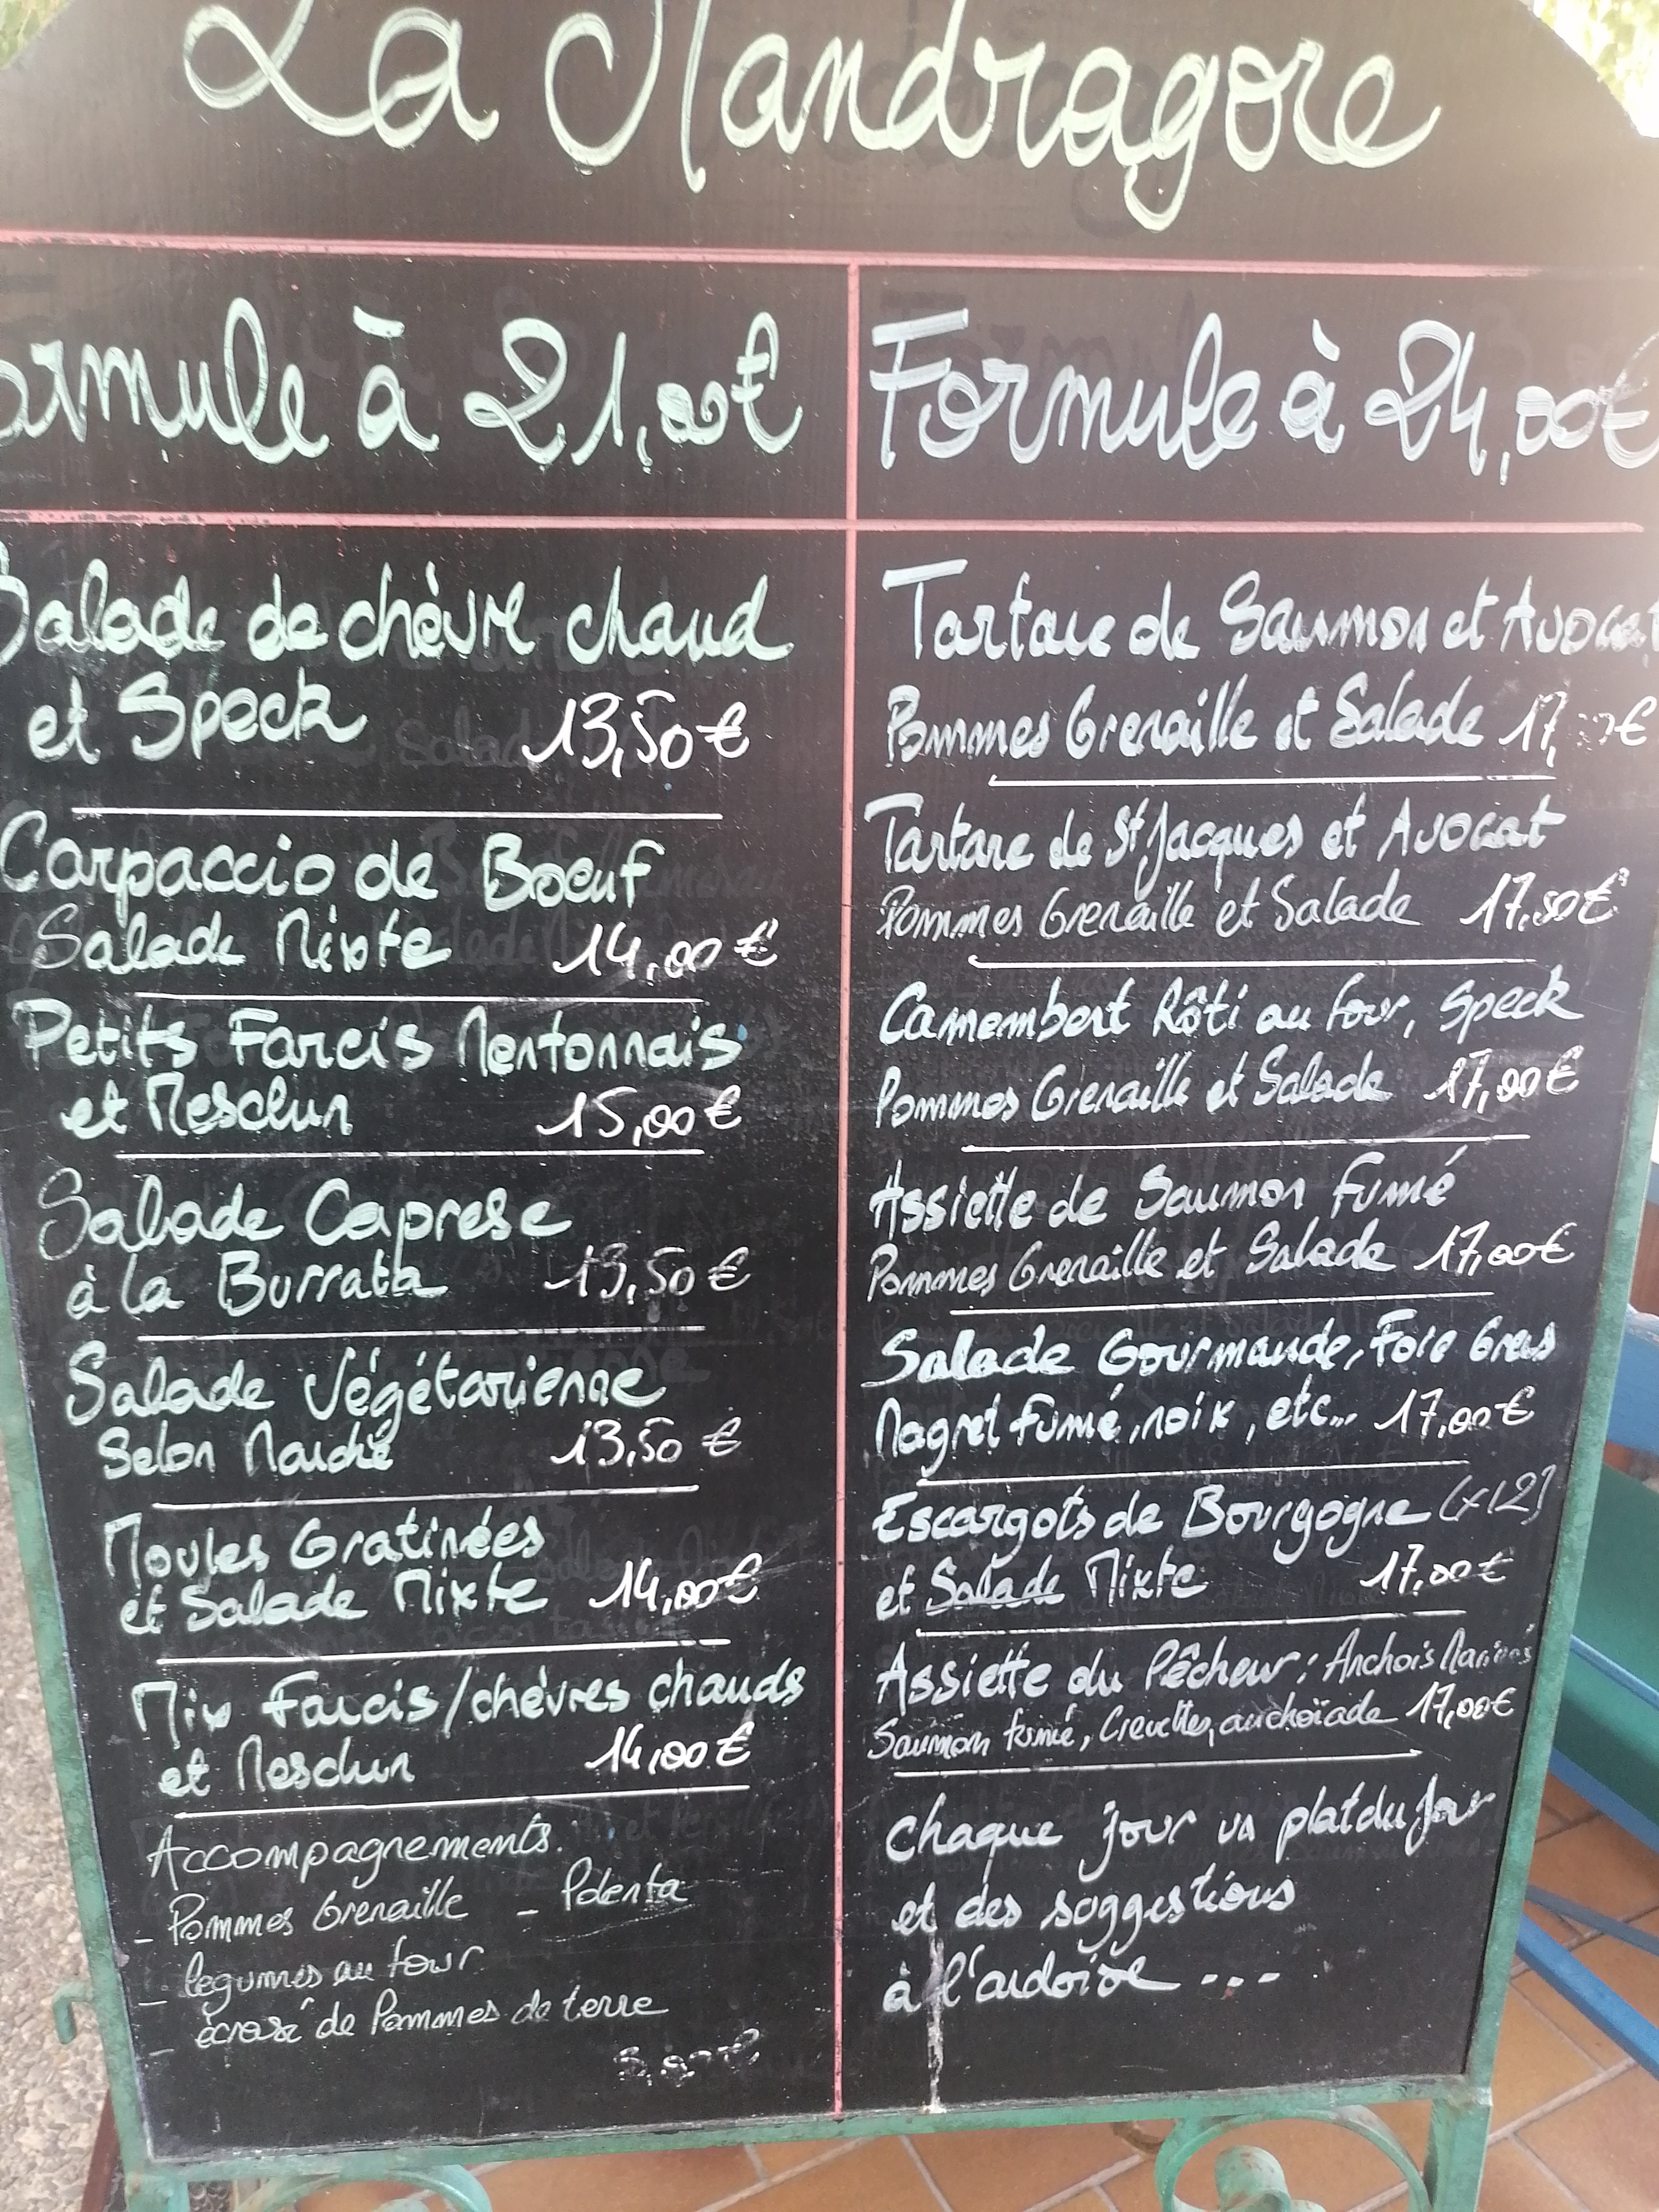 La Mandragore
ormule à 21,00€
Salade de chèvre chaud
et Speck 13,50€
Carpaccio de Boeuf
Salade Mixte 14,00€
Petits Farcis Mentonnais
et Mesclun 15,00€
Salade Caprese
à la Burratta 13,50€
Salade Végétarienne
Selon Marché 13,50€
Moules Gratinées
et Salade Mixte 14,00€
Mix Farcis/chèvres chauds
et Mesclun 14,00€
Accompagnements.
- Pommes Grenaille - Polenta
- légumes au four
- écrasé de Pommes de terre
Formule à 24,00€
Tartare de Saumon et Avocat
Pommes Grenaille et Salade
Tartare de St Jacques et Avocat
Pommes Grenaille et Salade 17,50€
Camembert Rôti au four, Speck
Pommes Grenaille et Salade 17,00€
Assiette de Saumon Fumé
Pommes Grenaille et Salade 17,00€
Salade Gourmande, Foie Gras
Magret fumé, noix, etc... 17,00€
Escargots de Bourgogne (x12)
et Salade Mixte 17,00€
Assiette du Pêcheur: Anchois Marinés
Saumon fumé, Crevettes, anchoïade 17,00€
Chaque jour un plat du jour
et des suggestions
à l'ardoise ...